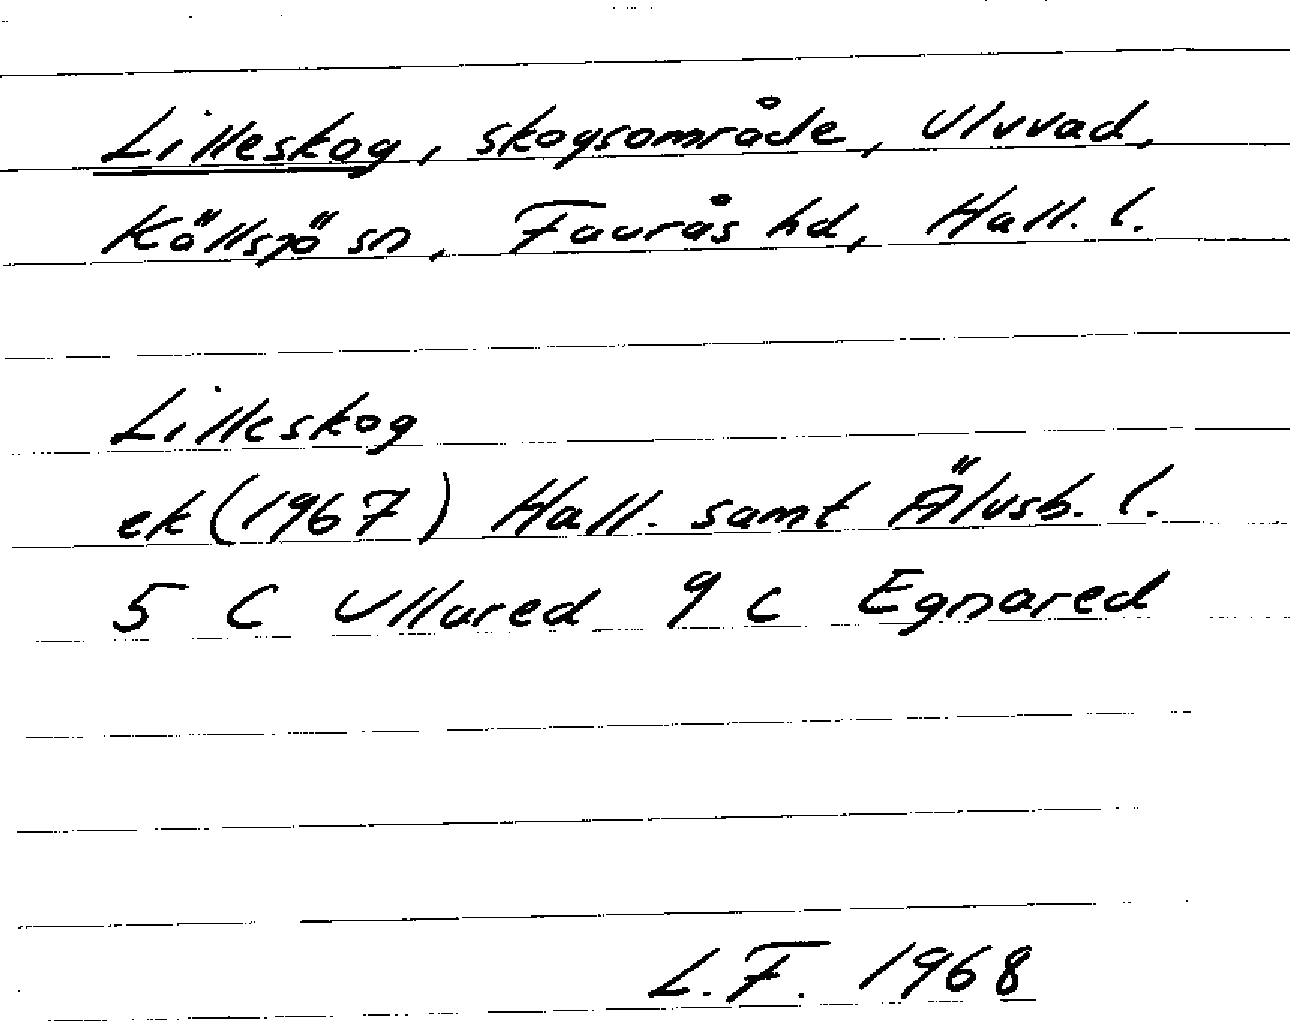 Lilleskog, skogsområde, Ulvvad,
Källsjö sn, Faurås hd, Hall. l.
Lilleskog
ek (1967) Hall. samt Älvsb. l.
5 C Ullared 9 c Egnared
L.F. 1968